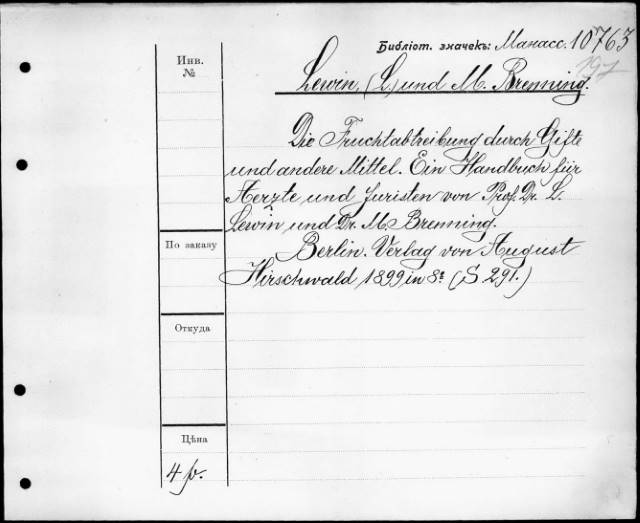 Библіот. значекъ: Манасс. 10763
Инв.
№
197
Lewin, (L) und M. Brenning.
Die Fruchtabtreibung durch Gifte
und andere Mittel. Ein Handbuch für
Aerzte und Juristen von Prof. Dr. L.
Lewin und Dr. M. Brenning.
По заказу
Berlin. Verlag von August
Hirschwald 1899 in 8º (S 291.)
Откуда
Цѣна
4 р.